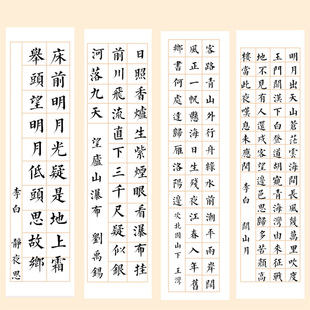 床前明月光疑是地上霜
舉頭望明月低頭思故鄉
李白 靜夜思
日照香爐生紫煙眼看瀑布挂
前川飛流直下三千尺疑似銀
河落九天 望廬山瀑布 劉禹錫
客路青山外行舟綠水前潮平兩岸闊
風正一帆懸海日生殘夜江春入舊年
鄉書何處達歸雁洛陽邊 次北固山下 王灣
明月出天山蒼茫雲海間長風幾萬里吹度
玉門關漢下白登道胡窺青海灣由來征戰
地不見有人還戍客望邊邑思歸多苦顏高
樓當此夜嘆息未應閒 李白 關山月